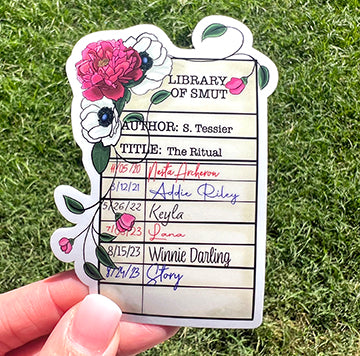 LIBRARY
OF SMUT
AUTHOR: S. Tessier
TITLE: The Ritual
11/05/20 Nesta Archeron
8/12/21 Addie Riley
5/26/22 Keyla
23 Lana
8/15/23 Winnie Darling
8/29/23 Story